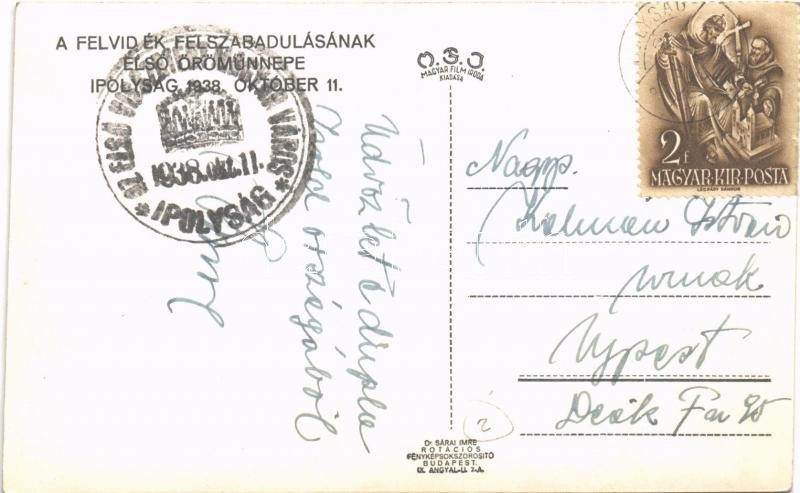 A FELVIDÉK FELSZABADULÁSÁNAK
ELSŐ ÖRÖMÜNNEPE
IPOLYSÁG, 1938. OKTÓBER 11.
AZ ELSŐ VISSZATÉRT MAGYAR VÁROS
1938. okt. 11.
* IPOLYSÁG *
MAGYAR FILM IRODA
KIADÁSA
2f
MAGYAR·KIR·POSTA
LÉGRÁDY SÁNDOR
Üdvözlet
országából
Nagys.
Kálmán István
urnak
Ujpest
Deák Fu 95
2
Dr SÁRAI IMRE
ROTÁCIÓS
FÉNYKÉPSOKSZOROSITÓ
BUDAPEST.
IX. ANGYAL-U. 7-A.